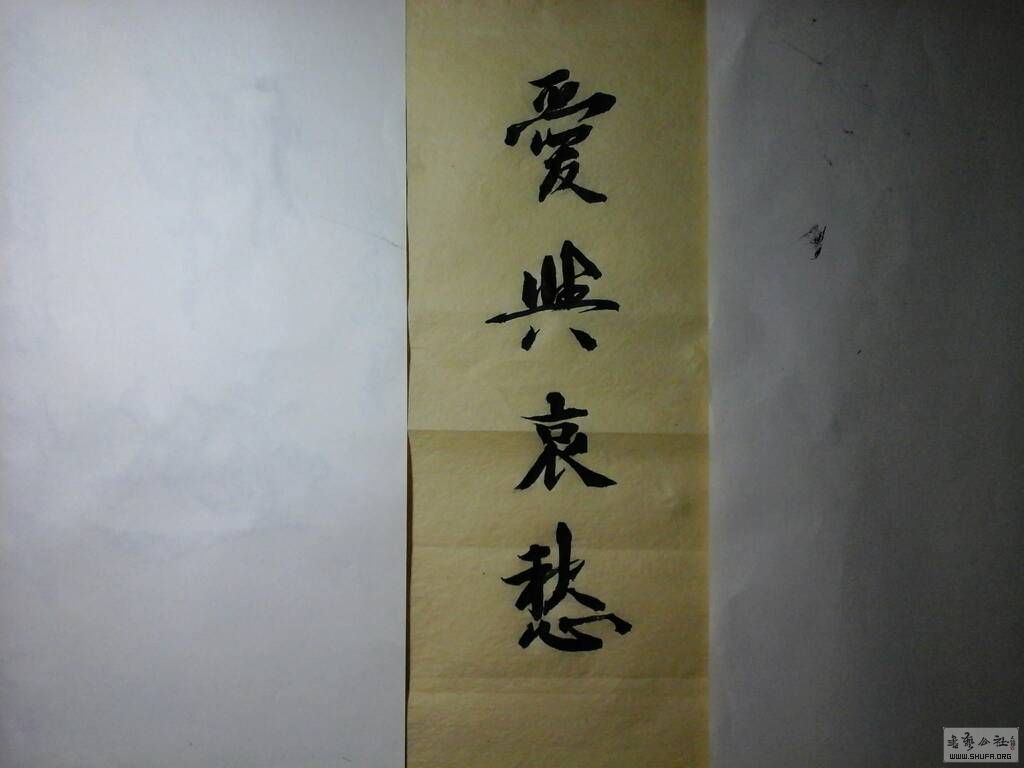 愛與哀愁
書藝公社
WWW.SHUFA.ORG